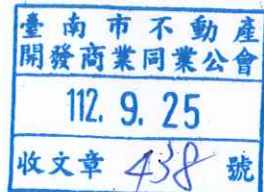 臺南市不動產
開發商業同業公會
112. 9. 25
收文章 438 號